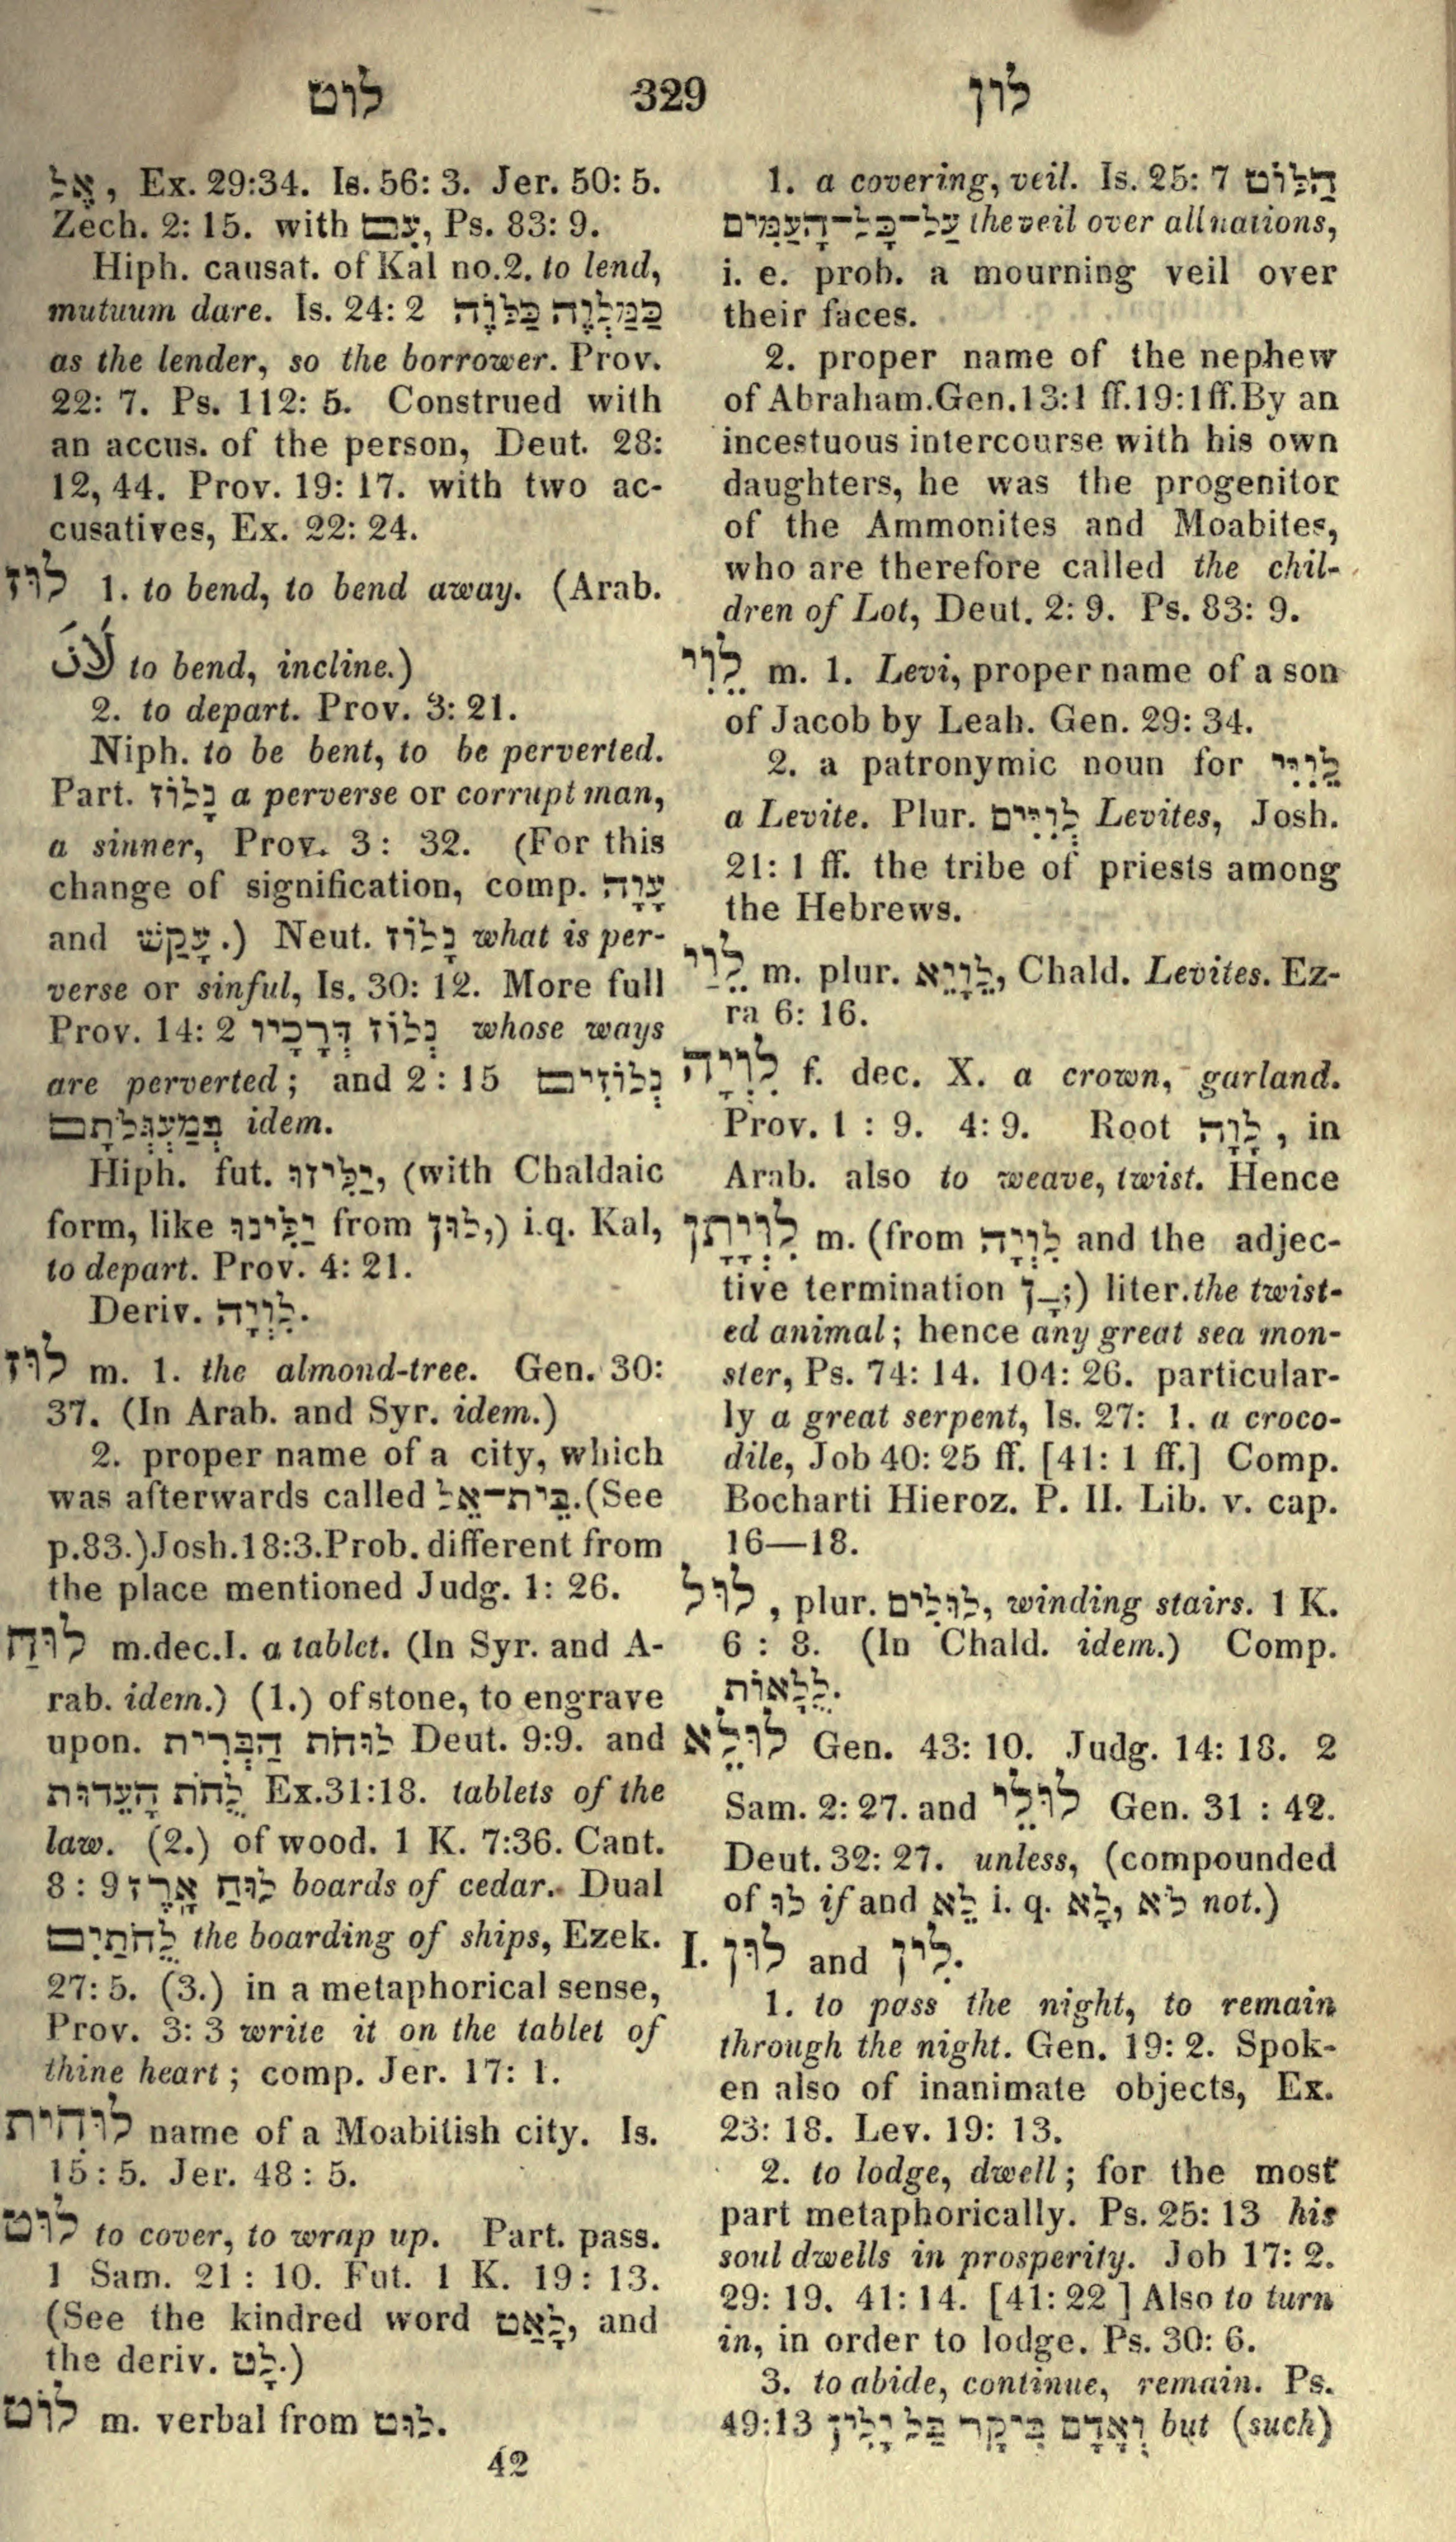 לוט 329 לון
אֶל, Ex. 29:34. Is. 56: 3. Jer. 50: 5.
Zech. 2: 15. with עִם, Ps. 83: 9.
Hiph. causat. of Kal no.2. to lend,
mutuum dare. Is. 24: 2 כַּמַּלְוֶה כַּלֹּוֶה
as the lender, so the borrower. Prov.
22: 7. Ps. 112: 5. Construed with
an accus. of the person, Deut. 28:
12, 44. Prov. 19: 17. with two ac-
cusatives, Ex. 22: 24.
לוּז 1. to bend, to bend away. (Arab.
to bend, incline.)
2. to depart. Prov. 3: 21.
Niph. to be bent, to be perverted.
Part. נָלוֹז a perverse or corrupt man,
a sinner, Prov. 3: 32. (For this
change of signification, comp. עָוָה
and עָקַשׁ.) Neut. נָלוֹז what is per-
verse or sinful, Is. 30: 12. More full
Prov. 14: 2 נְלוֹז דְּרָכָיו whose ways
are perverted; and 2: 15 נְלוֹזִים
בְּמַעְגְּלֹתָם idem.
Hiph. fut. יַלִּיזוּ, (with Chaldaic
form, like יַלִּינוּ from לוּן,) i.q. Kal,
to depart. Prov. 4: 21.
Deriv. לִוְיָה.
לוּז m. 1. the almond-tree. Gen. 30:
37. (In Arab. and Syr. idem.)
2. proper name of a city, which
was afterwards called בֵּית־אֵל.(See
p.83.)Josh.18:3.Prob. different from
the place mentioned Judg. 1: 26.
לוּחַ m.dec.I. a tablet. (In Syr. and A-
rab. idem.) (1.) of stone, to engrave
upon. לוּחֹת הַבְּרִית Deut. 9:9. and
לֻחֹת הָעֵדוּת Ex.31:18. tablets of the
law. (2.) of wood. 1 K. 7:36. Cant.
8: 9 לוּחַ אָרֶז boards of cedar. Dual
לֻחֹתַיִם the boarding of ships, Ezek.
27: 5. (3.) in a metaphorical sense,
Prov. 3: 3 write it on the tablet of
thine heart; comp. Jer. 17: 1.
לוּחִית name of a Moabitish city. Is.
15: 5. Jer. 48: 5.
לוּט to cover, to wrap up. Part. pass.
1 Sam. 21: 10. Fut. 1 K. 19: 13.
(See the kindred word לָאַט, and
the deriv. לָט.)
לוֹט m. verbal from לוּט.
42
1. a covering, veil. Is. 25: 7 הַלּוֹט
עַל־כָּל־הָעַמִּים the veil over all nations,
i. e. prob. a mourning veil over
their faces.
2. proper name of the nephew
of Abraham.Gen.13:1 ff.19:1ff.By an
incestuous intercourse with his own
daughters, he was the progenitor
of the Ammonites and Moabites,
who are therefore called the chil-
dren of Lot, Deut. 2: 9. Ps. 83: 9.
לֵוִי m. 1. Levi, proper name of a son
of Jacob by Leah. Gen. 29: 34.
2. a patronymic noun for לֵוִיִּי
a Levite. Plur. לְוִיִּים Levites, Josh.
21: 1 ff. the tribe of priests among
the Hebrews.
לֵוַי m. plur. לֵוָיֵא, Chald. Levites. Ez-
ra 6: 16.
לִוְיָה f. dec. X. a crown, garland.
Prov. 1: 9. 4: 9. Root לָוָה, in
Arab. also to weave, twist. Hence
לִוְיָתָן m. (from לִוְיָה and the adjec-
tive termination ־ָן;) liter.the twist-
ed animal; hence any great sea mon-
ster, Ps. 74: 14. 104: 26. particular-
ly a great serpent, Is. 27: 1. a croco-
dile, Job 40: 25 ff. [41: 1 ff.] Comp.
Bocharti Hieroz. P. II. Lib. v. cap.
16—18.
לוּל, plur. לוּלִים, winding stairs. 1 K.
6: 8. (In Chald. idem.) Comp.
לֻלָאוֹת.
לוּלֵא Gen. 43: 10. Judg. 14: 18. 2
Sam. 2: 27. and לוּלֵי Gen. 31: 42.
Deut. 32: 27. unless, (compounded
of לוּ if and לֵא i. q. לָא, לֹא not.)
I. לוּן and לִין.
1. to pass the night, to remain
through the night. Gen. 19: 2. Spok-
en also of inanimate objects, Ex.
23: 18. Lev. 19: 13.
2. to lodge, dwell; for the most
part metaphorically. Ps. 25: 13 his
soul dwells in prosperity. Job 17: 2.
29: 19. 41: 14. [41: 22 ] Also to turn
in, in order to lodge. Ps. 30: 6.
3. to abide, continue, remain. Ps.
49:13 וְאָדָם בִּיקָר בַּל יָלִין but (such)